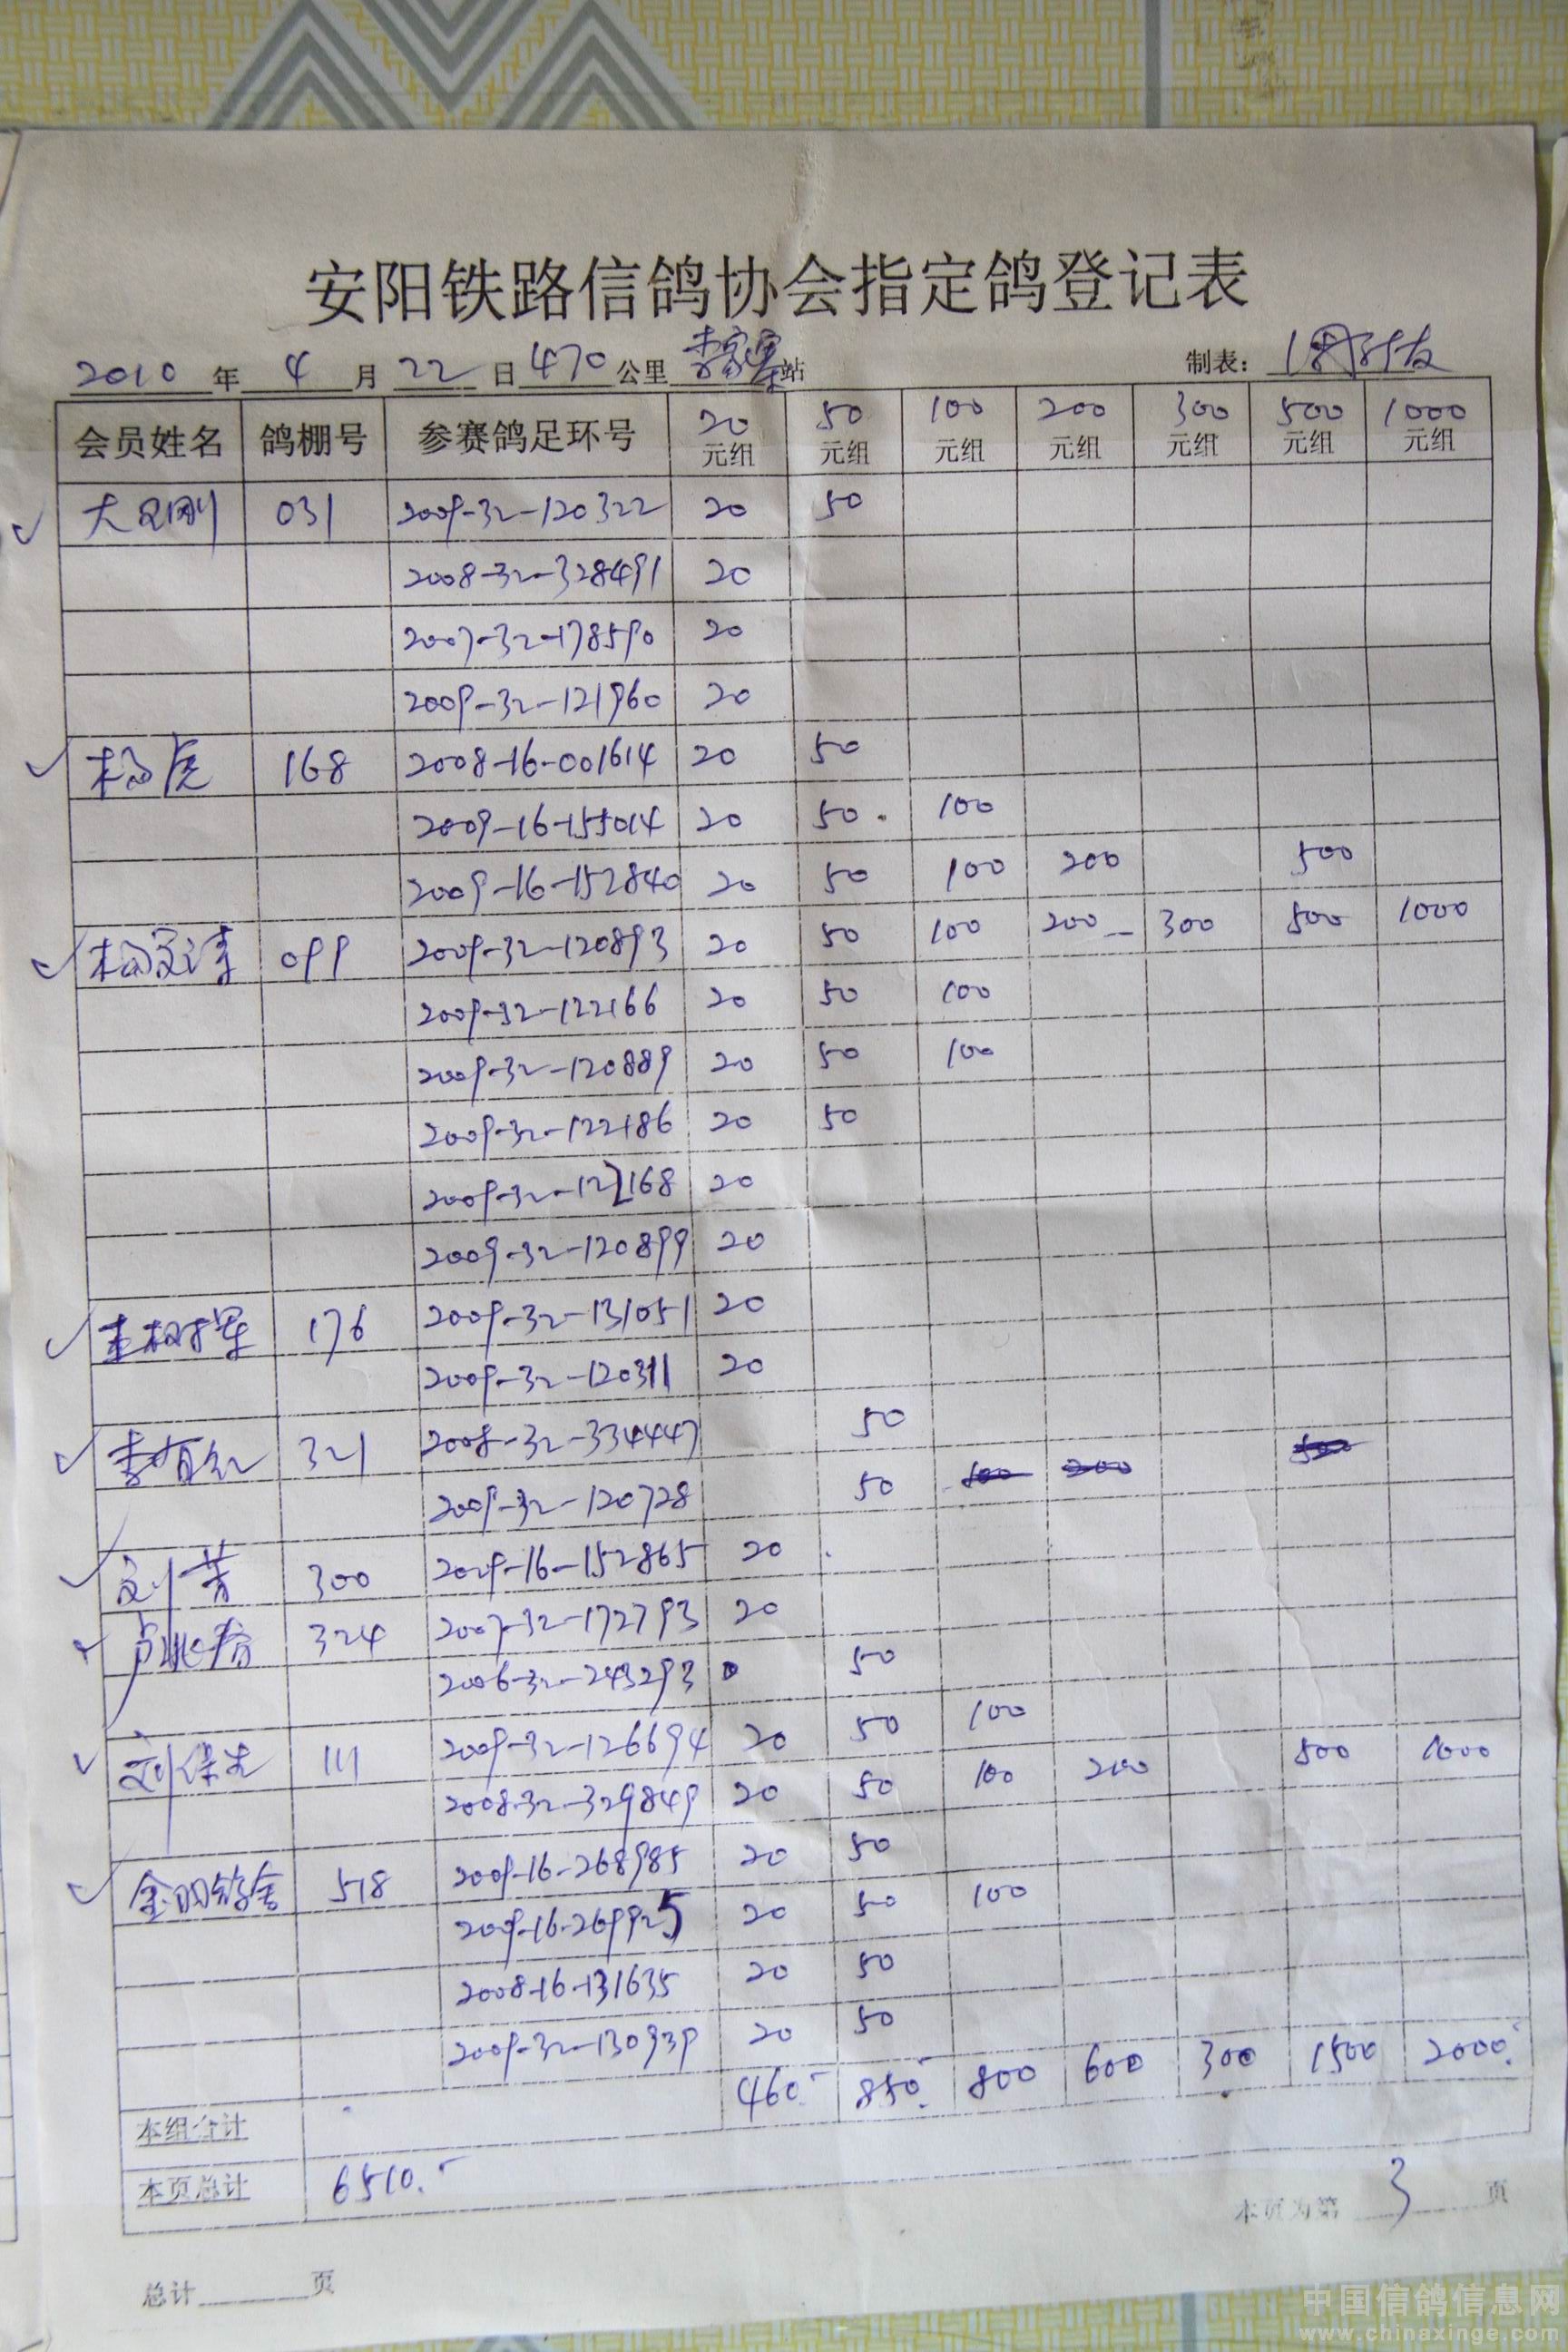 安阳铁路信鸽协会指定鸽登记表
2010 年 4 月 22 日 470 公里 李家寨 站 制表:
会员姓名 鸽棚号 参赛鸽足环号 20元组 50元组 100元组 200元组 300元组 500元组 1000元组
031 2009-32-120322 20 50
2008-32-328491 20
2007-32-178590 20
2009-32-121960 20
杨虎 168 2008-16-001614 20 50
2009-16-155014 20 50 100
2009-16-152840 20 50 100 200 500
099 2009-32-120893 20 50 100 200 300 500 1000
2009-32-122166 20 50 100
2009-32-120889 20 50 100
2009-32-122186 20 50
2009-32-122168 20
2009-32-120899 20
176 2009-32-131051 20
2009-32-120311 20
李有红 321 2008-32-334447 50
2009-32-120728 50 100 200 500
刘芳 300 2009-16-152865 20
324 2007-32-172793 20
2006-32-243293 50
刘保光 111 2009-32-126694 20 50 100
2008-32-329849 20 50 100 200 500 1000
518 2009-16-268985 20 50
2009-16-269925 20 50 100
2008-16-131635 20 50
2009-32-130939 20 50
本组合计 460.- 850.- 800 600 300 1500 2000.-
本页总计 6510.-
本页为第 3 页
总计 页
中国信鸽信息网
www.chinaxinge.com